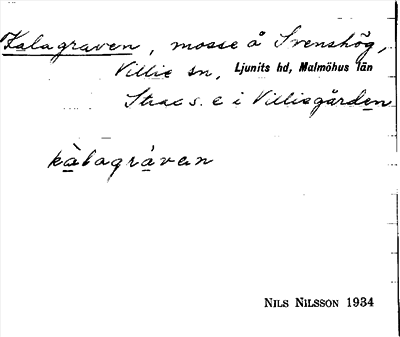 Kalagraven, mosse å Svenshög,
Villie sn, Ljunits hd, Malmöhus län
Strax s. e i Villiegården
kàlagráven
NILS NILSSON 1934